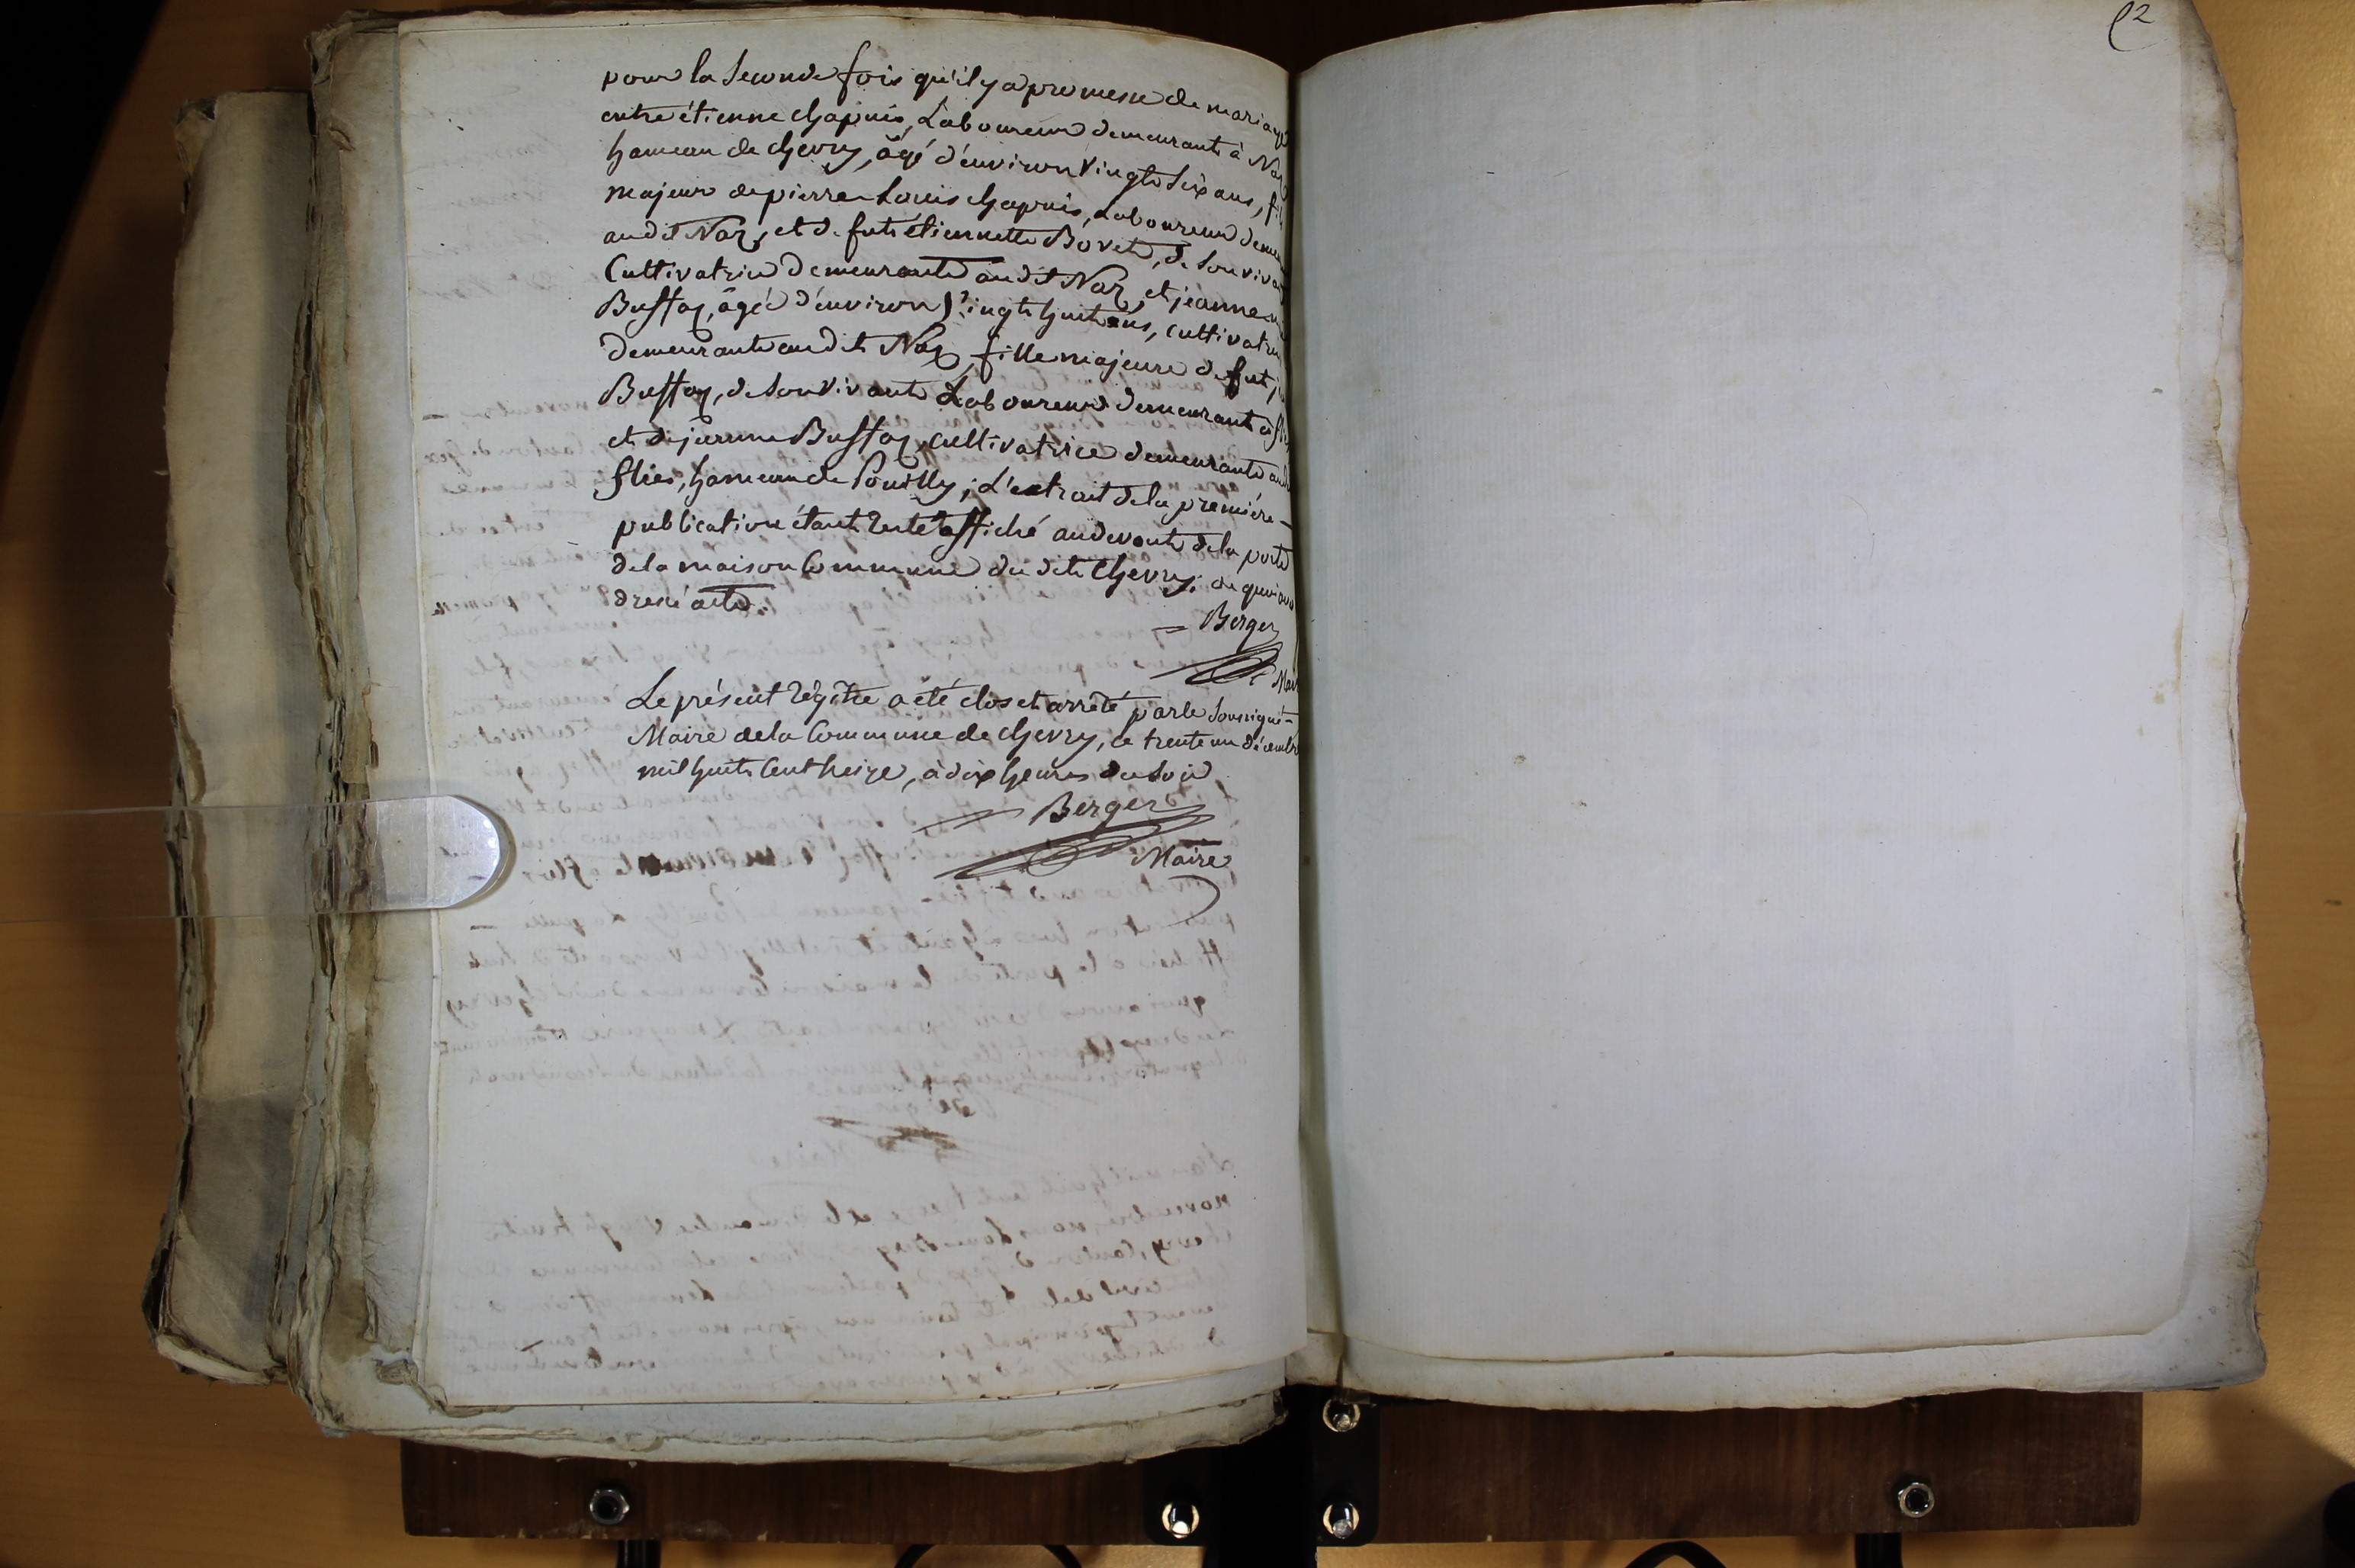 2
pour la Seconde fois qu'il y a promesse de mariage
entre étienne chapuis, Laboureur demeurant à Naz
hameau de chevry, âgé d'environ vingt Six ans, fils
majeur de pierre Louis chapuis, Laboureur
audit Naz, et de fut étiennette Bovet, de Son vivant
Cultivatrice demeurante audit Naz, et jeanne
Buffaz, âgé d'environ Vingt huit ans, cultivatrice
demeurante audit Naz, fille majeure de fut
Buffaz, de Son vivant Laboureur demeurant à
et de jeanne Buffaz, cultivatrice demeurante
flies, hameau de Pouilly; L'extrait de la première
publication étant resté affiché au devant de la porte
de la maison Commune du dit Chevry; de quoi avons
dressé acte.
Berger
Maire
Le présent régître a été clos et arrêté par le Soussigné
Maire de la Commune de chevry, ce trente un décembre
mil huit Cent treize, à dix heures du Soir
Berger
Maire